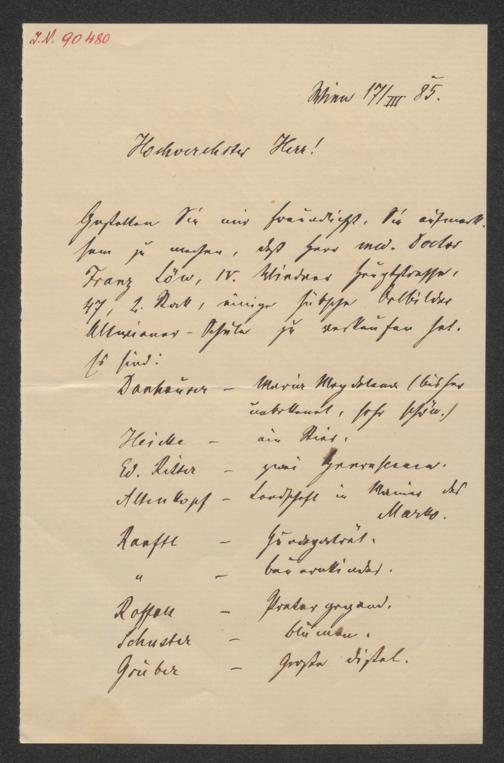 J.N. 90480
Wien 17/III 85.
Hochverehrter Herr!
Gestatten Sie mir freundlichst, Sie aufmerk-
sam zu machen, daß Herr med. Doctor
Franz Löw, IV. Wiedner Hauptstrasse,
47, 2. Stock, einige hübsche Oelbilder
Altwiener-Schule zu verkaufen hat.
Es sind:
Danhauser – Maria Magdalena (bisher
unbekannt, sehr schön.)
Heicke – ein Stier.
Ed. Ritter – zwei Genrescenen.
Altenkopf – Landschaft in Manier des
Marko.
Ranftl – Hundeporträt.
" – Bauernkinder.
– Pratergegend.
Schuster – Blumen.
Gruber – Große Distel.